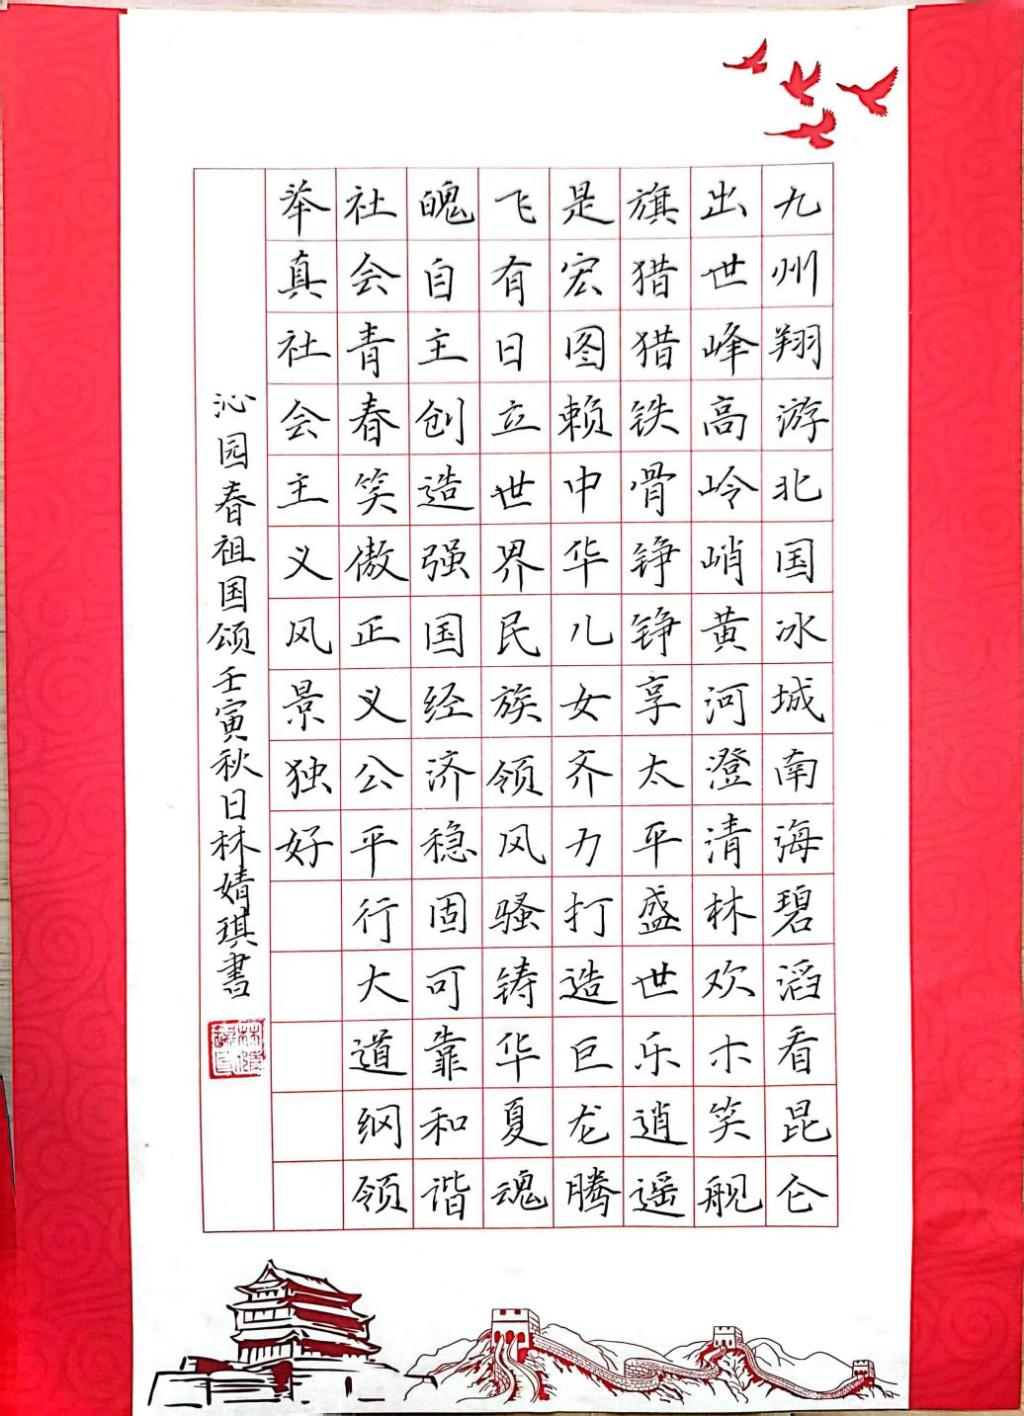 九州翔游北国冰城南海碧滔看昆仑
出世峰高岭峭黄河澄清林欢木笑舰
旗猎猎铁骨铮铮享太平盛世乐逍遥
是宏图赖中华儿女齐力打造巨龙腾
飞有日立世界民族领风骚铸华夏魂
魄自主创造强国经济稳固可靠和谐
社会青春笑傲正义公平行大道纲领
举真社会主义风景独好
沁园春祖国颂壬寅秋日林婧琪書